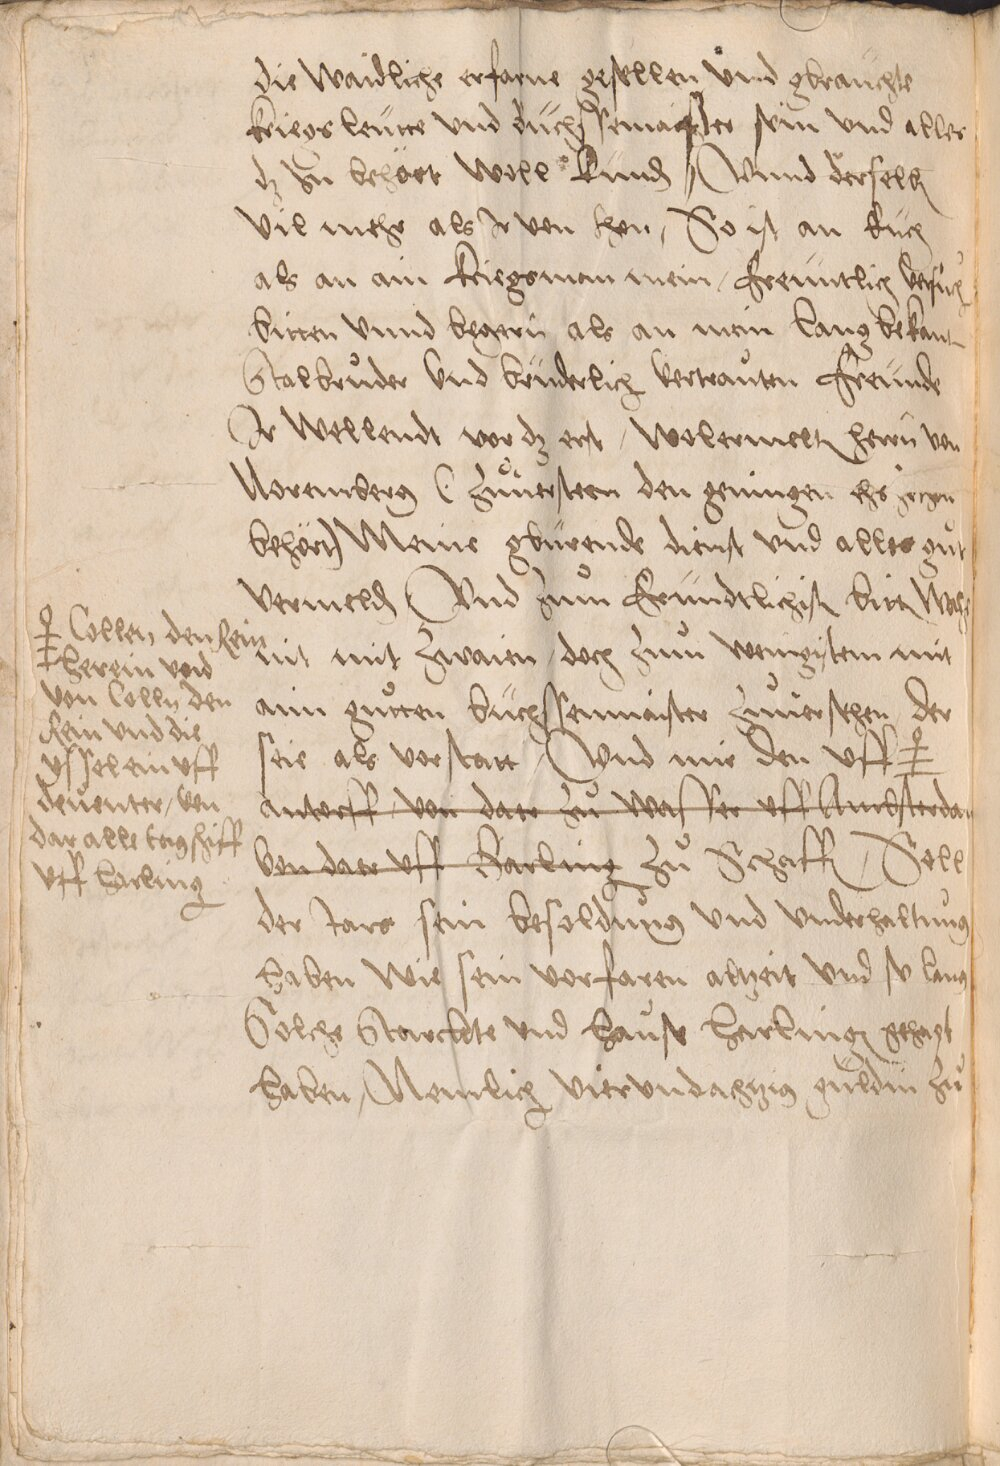 die waidliche erfarne gesellen und gbrauchte
kriegs leutte und buchssemaister sein und alles
dz zu behört woll kund, Unnd derselb
vil mehr als Ir von hon, So ist an Euch
als an ain kriegsman mein freuntlich
bitten unnd begern als an mein lang bekant
Stalbruder und bruderlich vertrauten freunde
Ir wellendt vor dz erst, wolermelt herrn von
Noremberg (Zuverstenn den geningen
behört) Meine gbürende dienst und alles gut
vermeld Und zum freundtlichist bitt
nit mit zwaien doch zum wenigstem mit
ain gutten buchssenmaister zuversehen der
seie als vorstatt, Und mir den uff
antorff, von datz zu wasser uff Ambsterdam
von datz uff Harling zu Schaff, Soll
der Jars sein besoldung und underhaltung
haben wie sein vorfaren altzeit und so lang
Solche Starckte und hause harling gehapt
haben, Nemlich vierundachzig guldin zu
Collen den Rein
herein und
von Colln den
Rein und die
yssel ein uff
deventer, von
dar alle tag schiff
uff harling